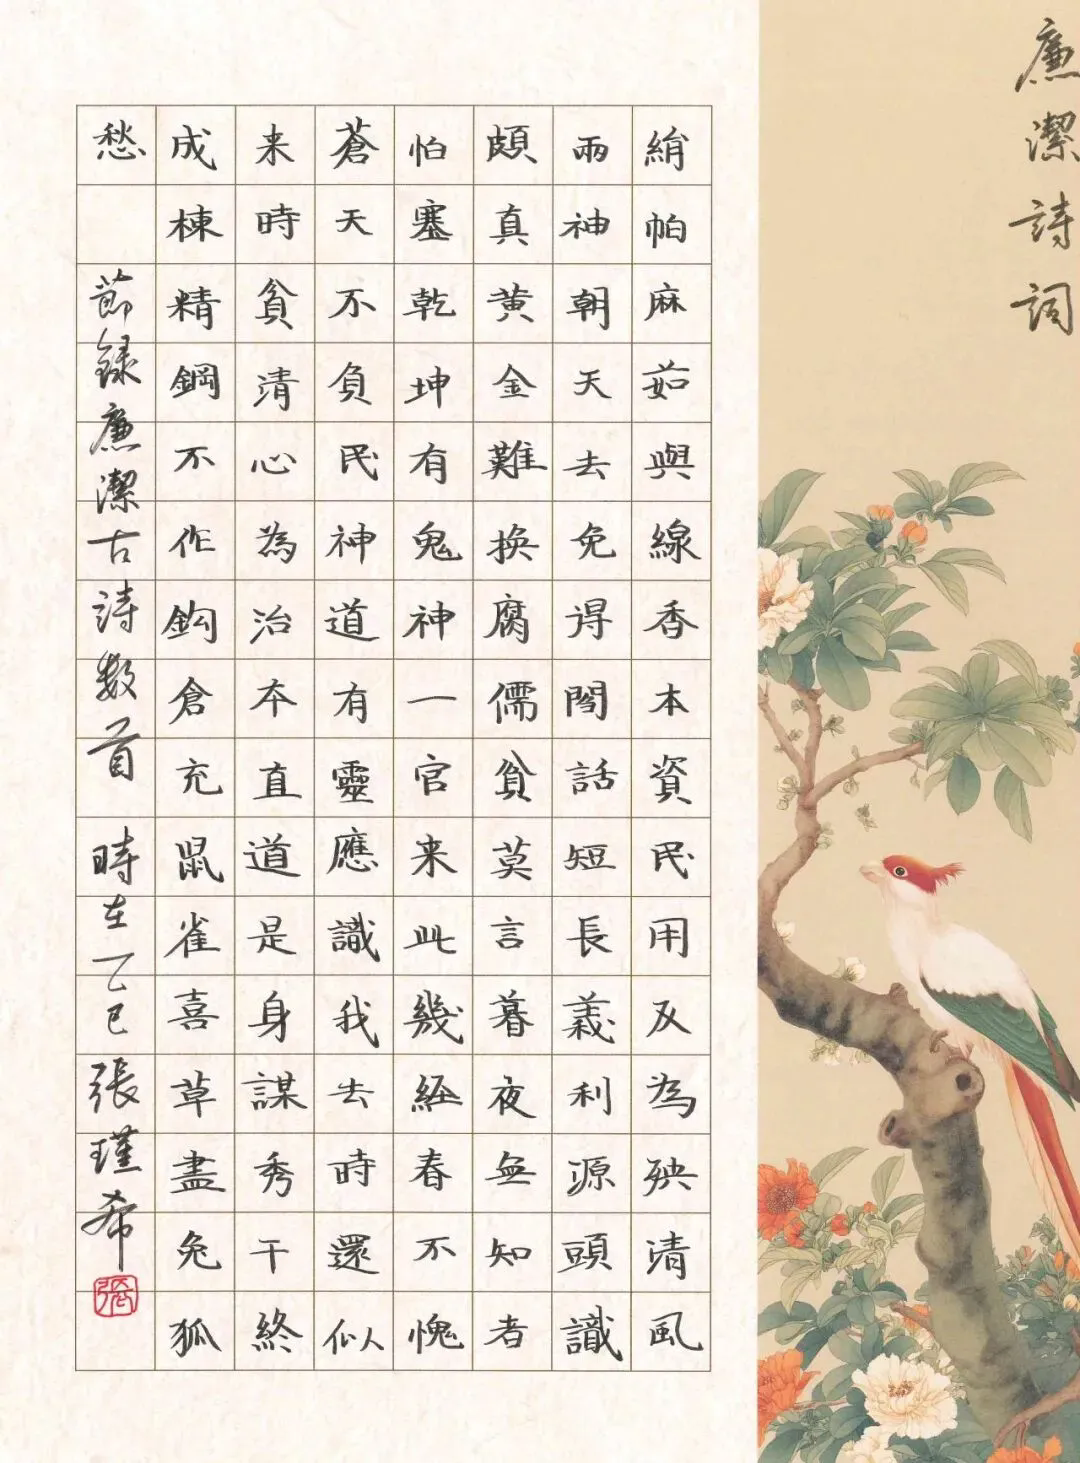 廉潔詩詞
絹帕麻茹與線香本資民用反為殃清風
兩袖朝天去免得閭話短長義利源頭識
頗真黃金難換腐儒貧莫言暮夜無知者
怕塞乾坤有鬼神一官来此幾經春不愧
蒼天不負民神道有靈應識我去時還似
来時貧清心為治本直道是身謀秀干終
成棟精鋼不作鈎倉充鼠雀喜草盡兔狐
愁 節錄廉潔古詩數首 時在乙巳 張瑾希
張